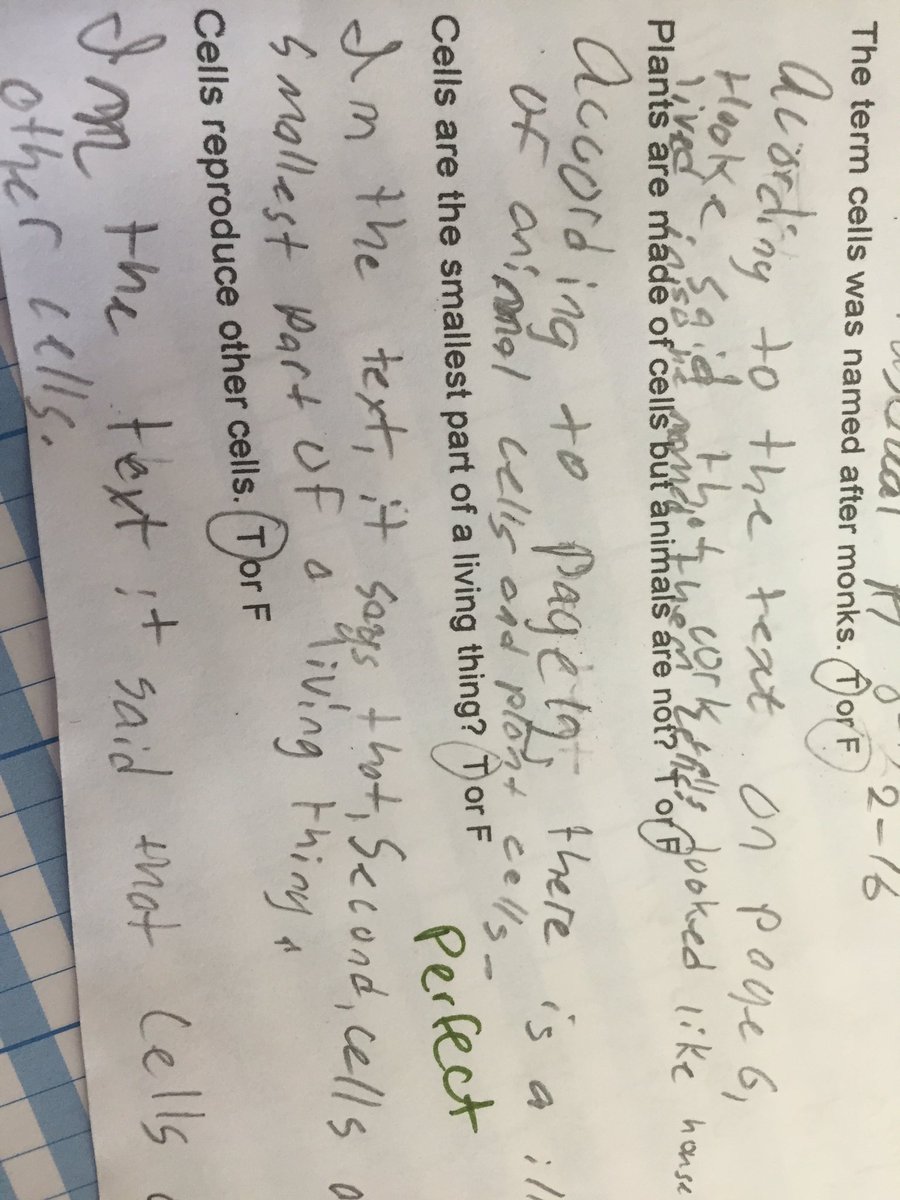 2-16
The term cells was named after monks. T or F
Acording to the text on page 6,
Hooke said that the cork cells looked like house
lived inside
Plants are made of cells but animals are not? T or F
According to page 1, there is a ill
of animal cells and plant cells-
Cells are the smallest part of a living thing? T or F
Perfect
In the text, it says that, Second, cells a
smallest part of a living thing.
Cells reproduce other cells. T or F
In the text it said that cells
other cells.